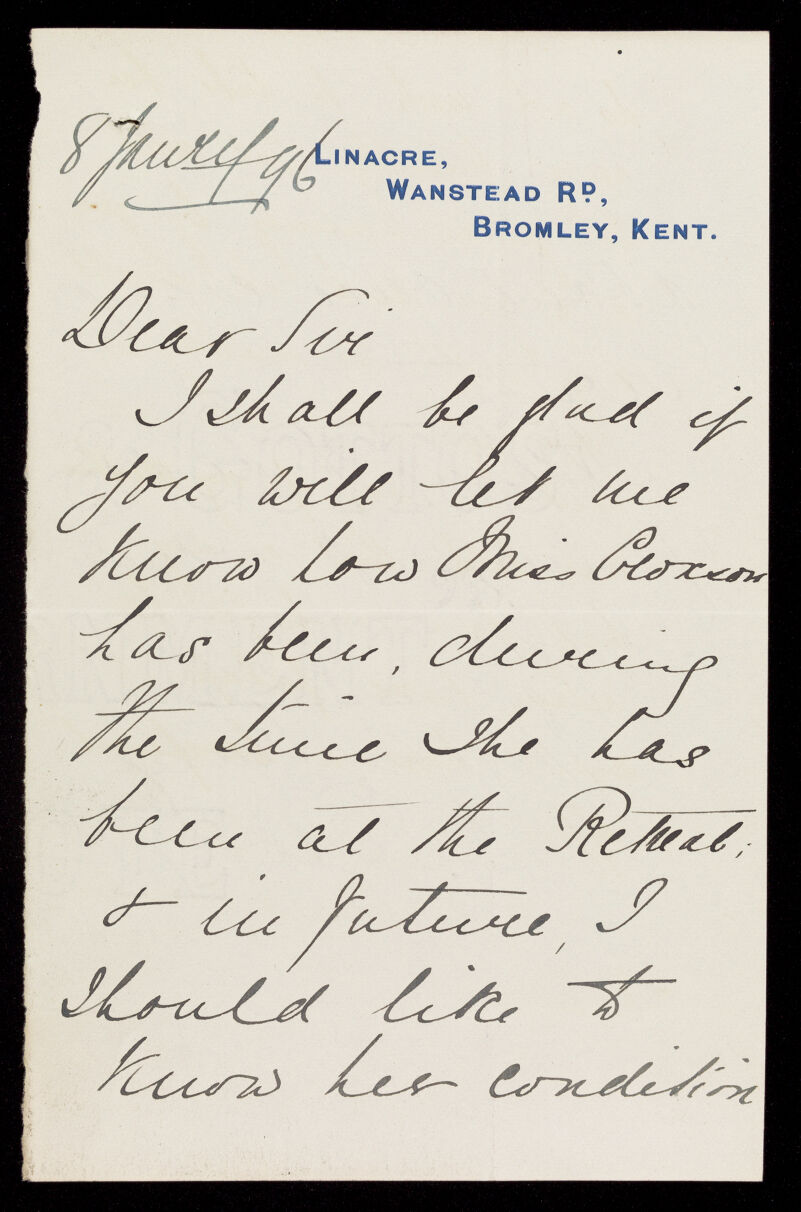 8 Janry/96
LINACRE,
WANSTEAD RD,
BROMLEY, KENT.
Dear Sir
I shall be glad if
you will let me
know how Miss Cloxson
has been, during
the time she has
been at the Retreat;
& in future, I
should like to
know her condition